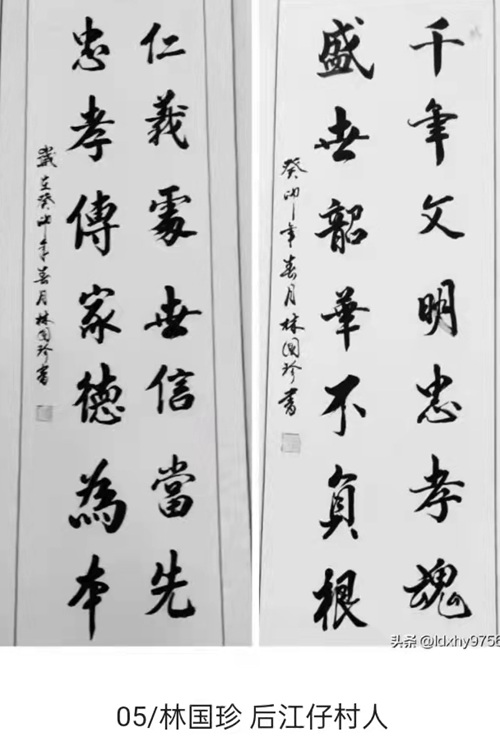 千年文明忠孝魂
盛世韶華不負根
癸卯年春月林國珍書
仁義處世信當先
忠孝傳家德為本
歲在癸卯年春月林國珍書
头条 @ldxhy9756
05/林国珍 后江仔村人